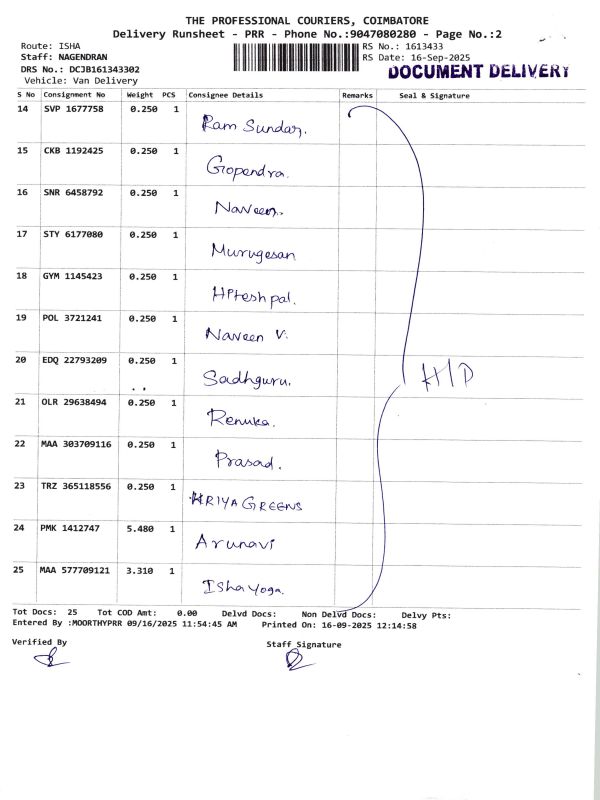 THE PROFESSIONAL COURIERS, COIMBATORE
Delivery Runsheet - PRR - Phone No.:9047080280 - Page No.:2
Route: ISHA RS No.: 1613433
Staff: NAGENDRAN RS Date: 16-Sep-2025
DRS No.: DCJB161343302 DOCUMENT DELIVERY
Vehicle: Van Delivery
S No Consignment No Weight PCS Consignee Details Remarks Seal & Signature
14 SVP 1677758 0.250 1 Ram Sundar.
15 CKB 1192425 0.250 1 Gopendra.
16 SNR 6458792 0.250 1 Naveen.
17 STY 6177080 0.250 1 Murugesan
18 GYM 1145423 0.250 1 Hiteshpal.
19 POL 3721241 0.250 1 Naveen V.
20 EDQ 22793209 0.250 1 Sadhguru.
H/D
21 OLR 29638494 0.250 1 Renuka.
22 MAA 303709116 0.250 1 Prasad.
23 TRZ 365118556 0.250 1 HRIYA GREENS
24 PMK 1412747 5.480 1 Arunavi
25 MAA 577709121 3.310 1 Isha yoga.
Tot Docs: 25 Tot COD Amt: 0.00 Delvd Docs: Non Delvd Docs: Delvy Pts:
Entered By :MOORTHYPRR 09/16/2025 11:54:45 AM Printed On: 16-09-2025 12:14:58
Verified By Staff Signature